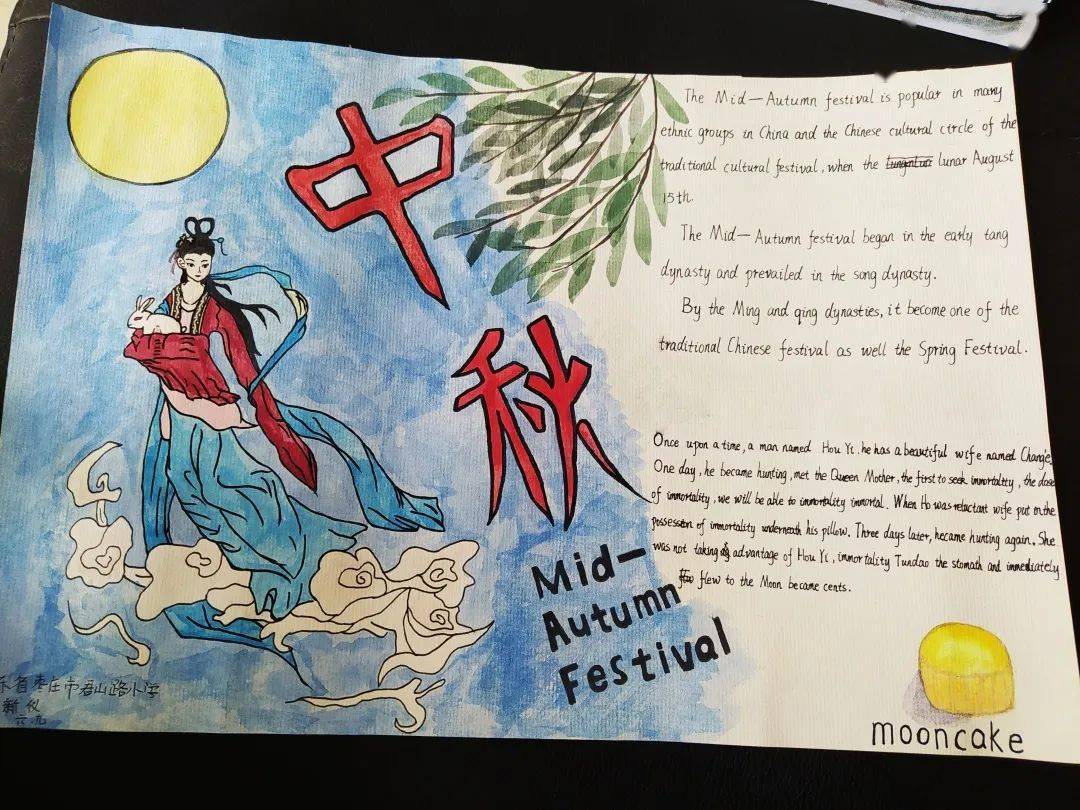 中
秋
Mid-
Autumn
Festival
The Mid—Autumn festival is popular in many
ethnic groups in China and the Chinese cultural circle of the
traditional cultural festival, when the lunar August
15th.
The Mid—Autumn festival began in the early tang
dynasty and prevailed in the song dynasty.
By the Ming and qing dynasties, it become one of the
traditional Chinese festival as well the Spring Festival.
Once upon a time, a man named Hou Yi. he has a beautiful wife named Change.
One day, he became hunting, met the Queen Mother, the first to seek immortality, the dose
of immortality, we will be able to immortality immortal. When Ho was reluctant wife put on the
possession of immortality underneath his pillow. Three days later, hecame hunting again. She
was not taking advantage of Hou Yi, immortality Tundao the stomath and immediately
flew to the Moon became cents.
mooncake
东省枣庄市君山路小学
新仪
六.九